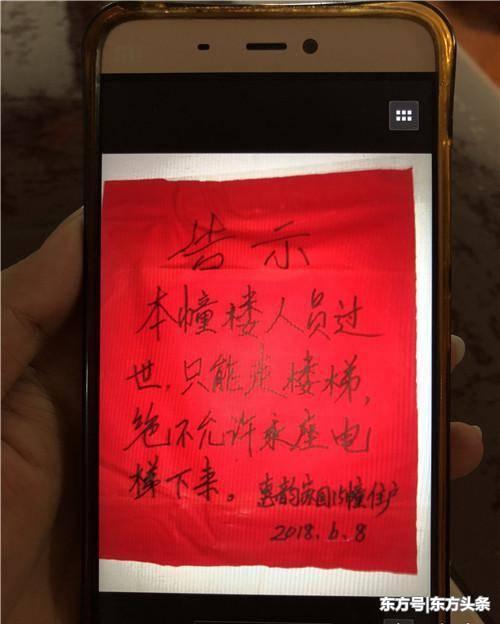 告示
本幢楼人员过
世，只能走楼梯，
绝不允许乘座电
梯下来。惠韵家园15幢住户
2018.6.8
东方号|东方头条